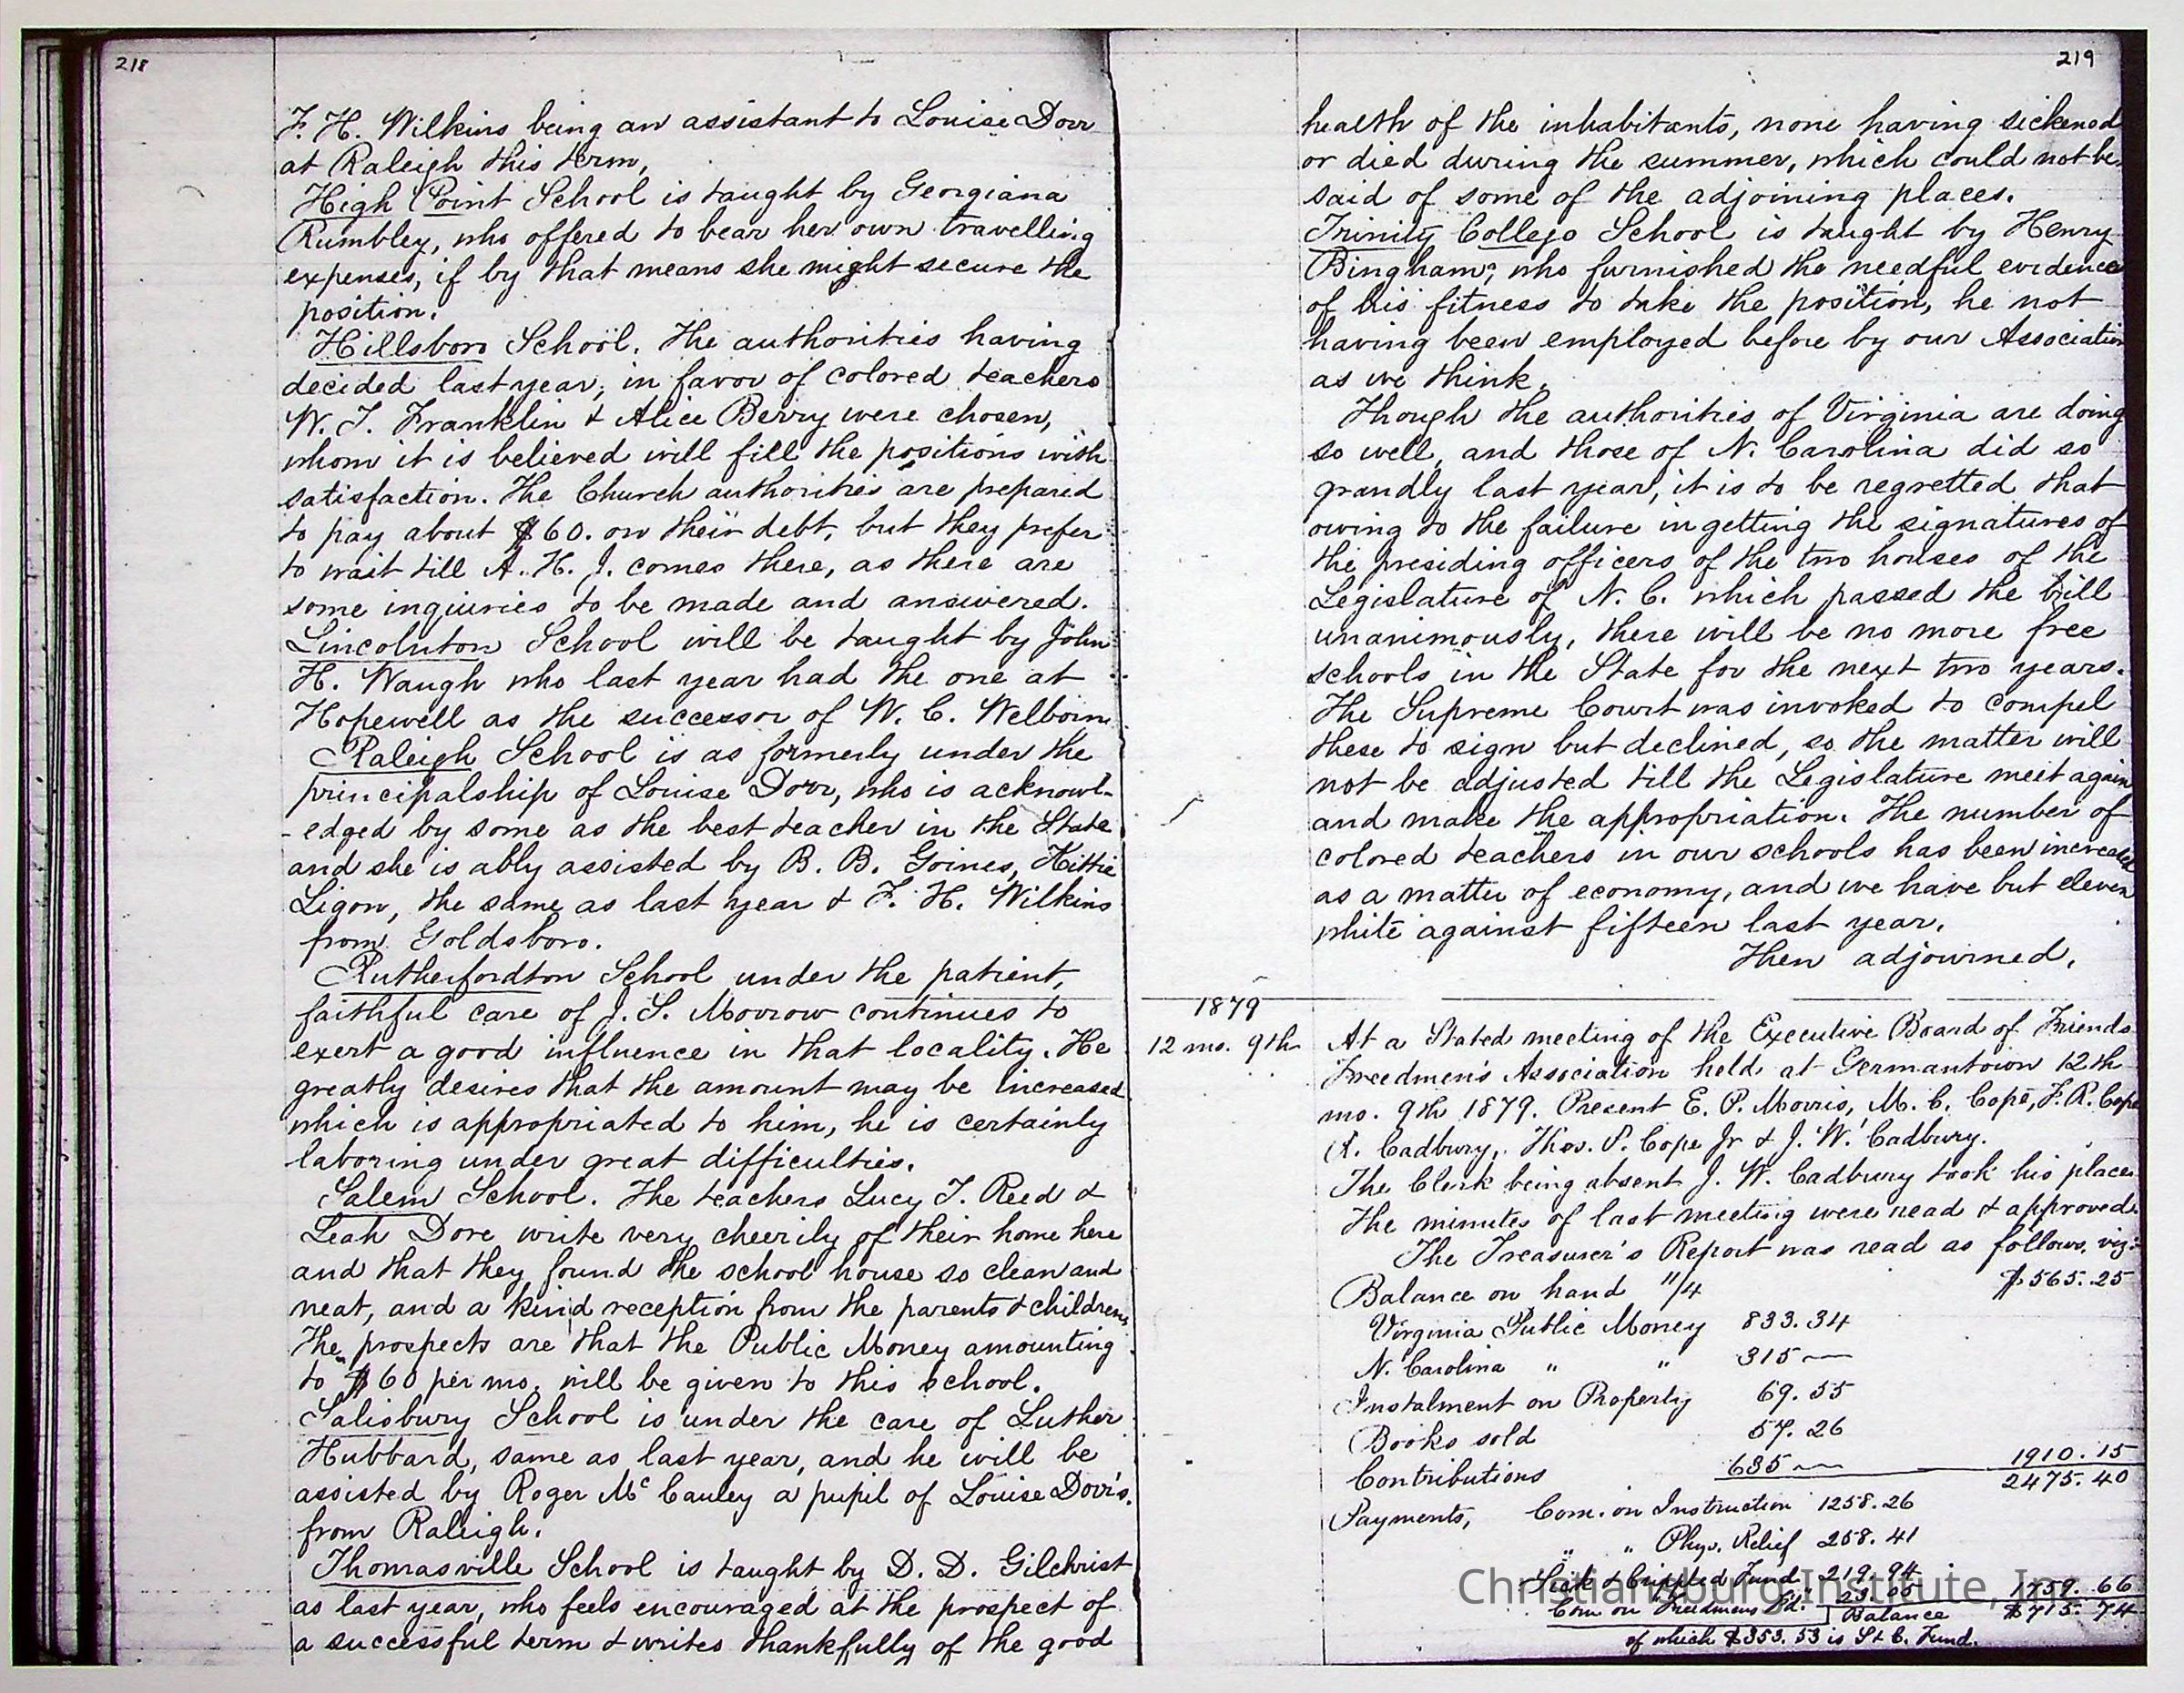 218
F. H. Wilkins being an assistant to Louise Dorr
at Raleigh this term,
High Point School is taught by Georgiana
Rumbley, who offered to bear her own travelling
expenses, if by that means she might secure the
position.
Hillsboro School. The authorities having
decided last year, in favor of colored teachers
W. T. Franklin & Alice Berry were chosen,
whom it is believed will fill the positions with
satisfaction. The Church authorities are prepared
to pay about $60. on their debt, but they prefer
to wait till A. H. J. comes there, as there are
some inquiries to be made and answered.
Lincolnton School will be taught by John
H. Waugh who last year had the one at
Hopewell as the successor of W. C. Welborn.
Raleigh School is as formerly under the
principalship of Louise Dorr, who is acknowl-
-edged by some as the best teacher in the State
and she is ably assisted by B. B. Goines, Kittie
Ligon, the same as last year & F. H. Wilkins
from Goldsboro.
Rutherfordton School under the patient,
faithful care of J. S. Morrow continues to
exert a good influence in that locality. He
greatly desires that the amount may be increased
which is appropriated to him, he is certainly
laboring under great difficulties.
Salem School. The teachers Lucy T. Reed &
Leah Dore write very cheerily of their home here
and that they found the school house so clean and
neat, and a kind reception from the parents & children.
The prospects are that the Public Money amounting
to $60 per mo. will be given to this school.
Salisbury School is under the care of Luther
Hubbard, same as last year, and he will be
assisted by Roger McCauley a pupil of Louise Dorr's.
from Raleigh.
Thomasville School is taught by D. D. Gilchrist
as last year, who feels encouraged at the prospect of
a successful term & writes thankfully of the good
219
health of the inhabitants, none having sickened
or died during the summer, which could not be
said of some of the adjoining places.
Trinity College School is taught by Henry
Bingham; who furnished the needful evidence
of his fitness to take the position, he not
having been employed before by our Association
as we think.
Though the authorities of Virginia are doing
so well, and those of N. Carolina did so
grandly last year, it is to be regretted that
owing to the failure in getting the signatures of
the presiding officers of the two houses of the
Legislature of N. C. which passed the bill
unanimously, there will be no more free
schools in the State for the next two years.
The Supreme Court was invoked to compel
these to sign but declined, so the matter will
not be adjusted till the Legislature meet again
and make the appropriation. The number of
colored teachers in our schools has been increased
as a matter of economy, and we have but eleven
white against fifteen last year.
Then adjourned.
1879
12 mo. 9th At a Stated meeting of the Executive Board of Friends
Freedmen's Association held at Germantown 12th
mo. 9th 1879. Present E. P. Morris, M. C. Cope, F. R. Cope
R. Cadbury, Thos. P. Cope Jr & J. W. Cadbury.
The Clerk being absent J. W. Cadbury took his place
The minutes of last meeting were read & approved.
The Treasurer's Report was read as follows, viz:
Balance on hand 11/4 $565.25
Virginia Public Money 833.34
N. Carolina " " 315 —
Instalment on Property 69.55
Books sold 57.26
Contributions 635 — 1910.15
2475.40
Payments, Com. on Instruction 1258.26
" " Phys. Relief 258.41
Sick & Crippled Fund 219.94
Com on Freedmens Fd. 23.05 1759.66
Balance $715.74
of which $353.53 is S & C. Fund.
Christiansburg Institute, Inc.